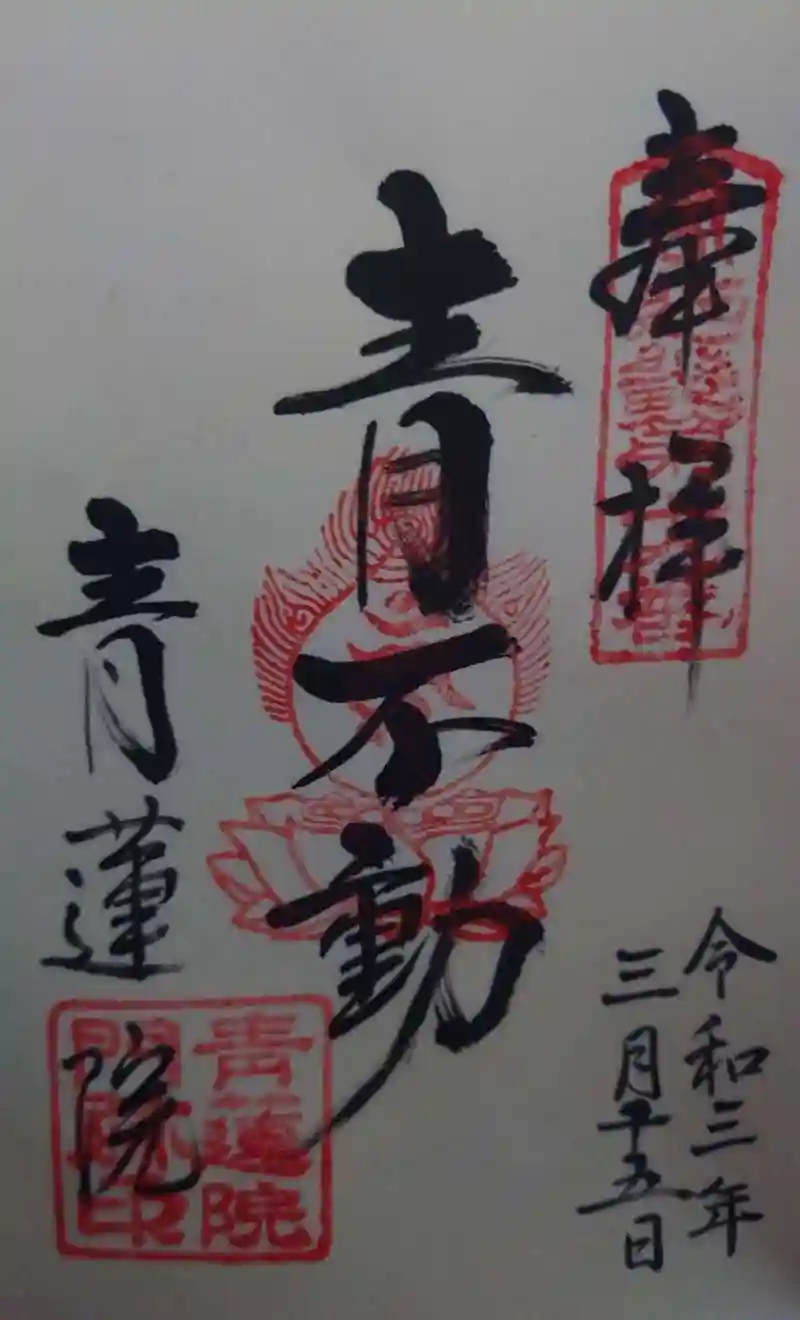 奉拝
令和三年
三月二十五日
青不動
青蓮院
青蓮院
門跡印